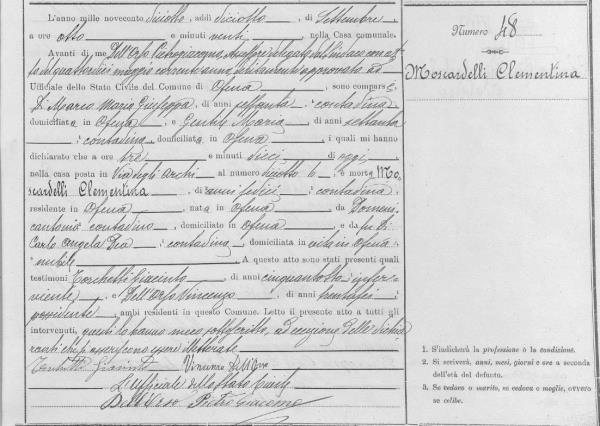 L'anno mille novecento diciotto, addì diciotto, di Settembre
a ore otto e minuti venti, nella Casa comunale.
Avanti di me Dell'Orso Pietro Giacomo, Assessore delegato dal Sindaco con at
to del quattordici maggio corrente anno, debitamente approvato ed
Ufficiale dello Stato Civile del Comune di Ofena, sono comparsi
Di Marco Maria Giuseppa, di anni settanta, contadina
domiciliata in Ofena, e Gentile Maria, di anni settanta
, contadina, domiciliata in Ofena, i quali mi hanno
dichiarato che a ore tre e minuti dieci di oggi, nella
casa posta in Via degli Archi al numero diciotto b, è morta Mo
scardelli Clementina di anni sedici, contadina
residente in Ofena, nata in Ofena, da Domeni
cantonio, contadino, domiciliato in Ofena, e da fu Di
Carlo Angela Dea, contadina, domiciliata in vita in Ofena
nubile. A questo atto sono stati presenti quali
testimoni Torchetti Giacinto, di anni cinquantotto, inser
viente, e Dell'Orso Vincenzo, di anni trentasei,
possidente, ambi residenti in questo Comune. Letto il presente atto a tutti gli
intervenuti, questi lo hanno meco sottoscritto, ad eccezione delle dichia
ranti che asseriscono essere illetterate
Torchetti Giacinto Vincenzo Dell'Orso
L'Ufficiale dello Stato Civile
Dell'Orso Pietro Giacomo
Numero 48
Moscardelli Clementina
1. S'indicherà la professione o la condizione.
2. Si scriverà, anni, mesi, giorni e ore a seconda
dell'età del defunto.
3. Se vedovo o marito, se vedova o moglie, ovvero
se celibe.